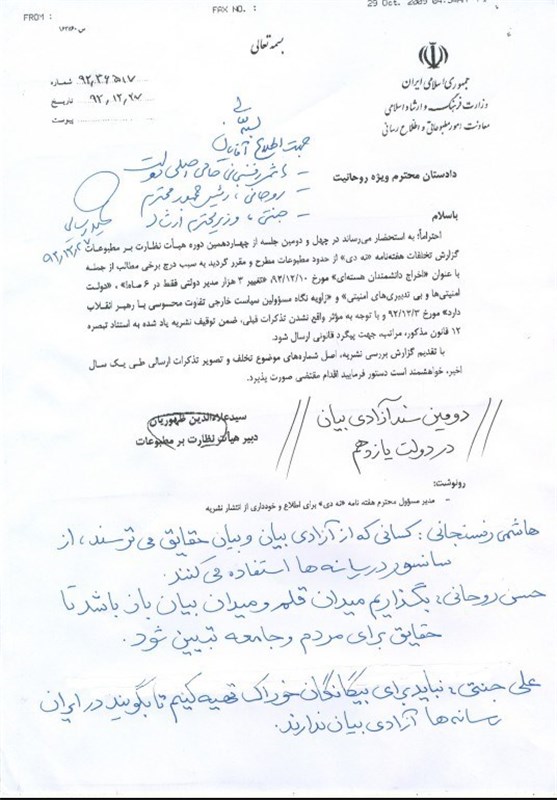 FROM :
FAX NO. :
29 Oct. 2009
بسمه تعالی
جمهوری اسلامی ایران
وزارت فرهنگ و ارشاد اسلامی
معاونت امور مطبوعاتی و اطلاع رسانی
شماره
تاریخ ۹۲,۱۲,۲۷
پیوست
جهت اطلاع آقایان
– هاشمی رفسنجانی حامی اصلی دولت
– روحانی، رئیس جمهور محترم
– جنتی، وزیر محترم ارشاد
۹۲,۱۲,۲۷
دادستان محترم ویژه روحانیت
باسلام
احتراماً؛ به استحضار می‌رساند در چهل و دومین جلسه از چهاردهمین دوره هیأت نظارت بر مطبوعات
گزارش تخلفات هفته‌نامه «نه دی» از حدود مطبوعات مطرح و مقرر گردید به سبب درج برخی مطالب از جمله
با عنوان «اخراج دانشمندان هسته‌ای» مورخ ۹۲/۱۲/۱۰، «تغییر ۳ هزار مدیر دولتی فقط در ۶ ماه!» ، «دولت
امنیتی‌ها و بی تدبیری‌های امنیتی» و «زاویه نگاه مسؤولین سیاست خارجی تفاوت محسوسی با رهبر انقلاب
دارد» مورخ ۹۲/۱۲/۳ و با توجه به مؤثر واقع نشدن تذکرات قبلی، ضمن توقیف نشریه یاد شده به استناد تبصره
۱۲ قانون مذکور، مراتب، جهت پیگرد قانونی ارسال شود.
با تقدیم گزارش بررسی نشریه، اصل شماره‌های موضوع تخلف و تصویر تذکرات ارسالی طی یک سال
اخیر، خواهشمند است دستور فرمایید اقدام مقتضی صورت پذیرد.
سیدعلاءالدین ظهوریان
دبیر هیأت نظارت بر مطبوعات
دومین سند آزادی بیان
در دولت یازدهم
رونوشت:
– مدیر مسؤول محترم هفته نامه «نه دی» برای اطلاع و خودداری از انتشار نشریه
هاشمی رفسنجانی: کسانی که از آزادی بیان و بیان حقایق می ترسند، از
سانسور در رسانه ها استفاده می کنند.
حسن روحانی: بگذاریم میدان قلم و میدان بیان باز باشد تا
حقایق برای مردم و جامعه تبیین شود.
علی جنتی: نباید برای بیگانگان خوراک تهیه کنیم تا بگویند در ایران
رسانه ها آزادی بیان ندارند.